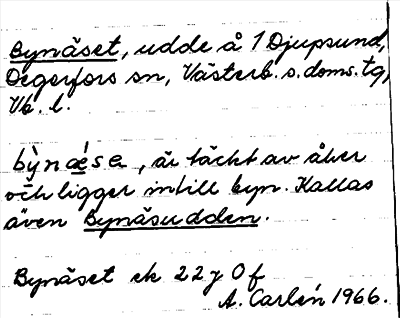 Bynäset, udde å 1 Djupsund,
Degerfors sn, Västerb. s. doms. tg,
Vb. l.
bỳnǽsα, är täckt av åker
och ligger intill byn. Kallas
även Bynäsudden.
Bynäset ek 22 y 0 f
A. Carlén 1966.